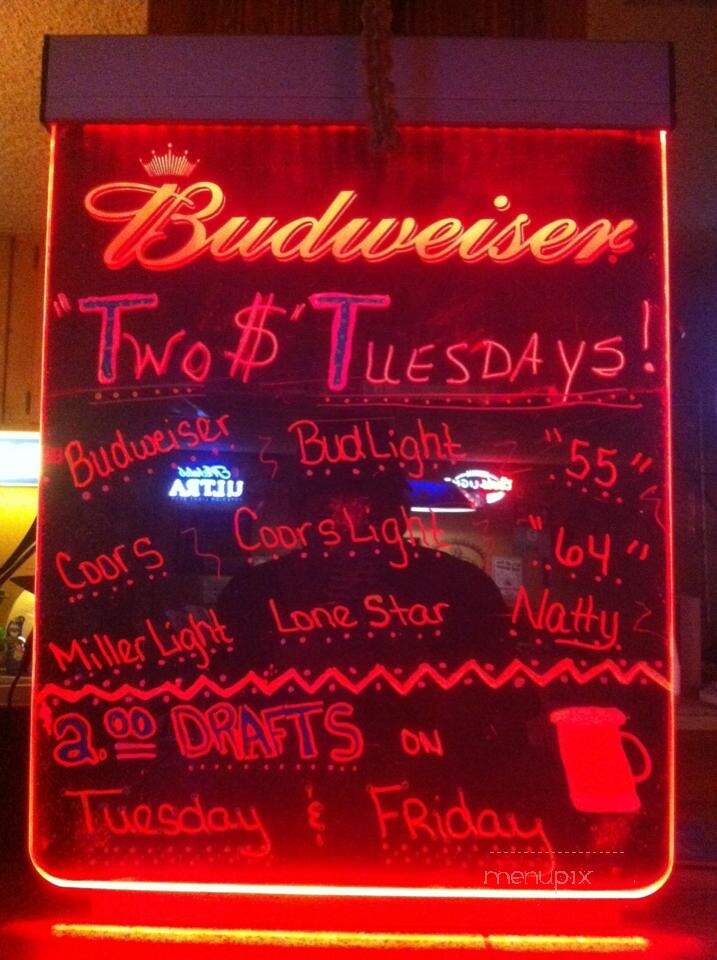 Budweiser
"Two $" Tuesdays!
Budweiser Bud Light "55"
ULTRA
Coors Coors Light "64"
Miller Light Lone Star Natty
2.00 DRAFTS ON
Tuesday & FRiday
menupix